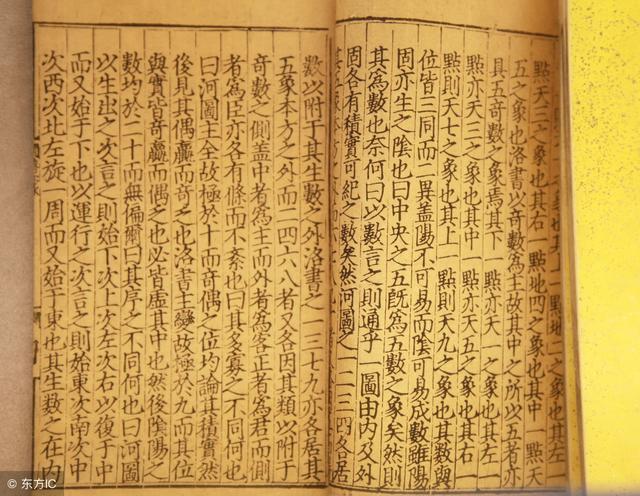 點天三之象也其右一點地四之象也其中一點天
五之象也洛書以奇數為主故其中之所以五者亦
具五奇數之象焉其下一點亦天一之象也其左一
點亦天三之象也其中一點亦天五之象也其右一
點則天七之象也其上一點則天九之象也其數與
位皆三同而二異蓋陽不可易而陰可易成數雖陽
固亦生之陰也曰中央之五既為五數之象矣然則
其為數也奈何曰以數言之則通乎一圖由內及外
固各有積實可紀之數矣然河圖之一二三四各居
數以附于其生數之外洛書之一三七九亦各居其
五象本方之外而二四六八者又各因其類以附于
奇數之側蓋中者為主而外者為客正者為君而側
者為臣亦各有條而不紊也曰其多寡之不同何也
曰河圖主全故極於十而奇偶之位均論其積實然
後見其偶贏而奇乏也洛書主變故極於九而其位
與實皆奇贏而偶乏也必皆虛其中也然後陰陽之
數均於二十而無偏爾曰其序之不同何也曰河圖
以生出之次言之則始下次上次左次右以復于中
而又始于下也以運行之次言之則始東次南次中
次西次北左旋一周而又始于東也其生數之在內
© 东方IC